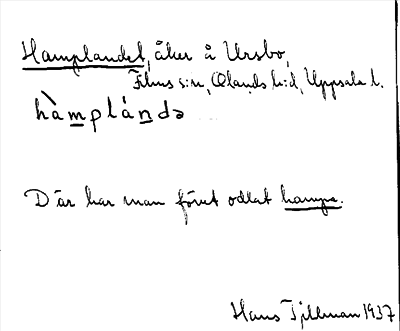 Hamplandet, åker å Ursbo,
Films s:n, Olands h:d, Uppsala l.
hàmplándə
Där har man förut odlat hampa.
Hans Tjillman 1937